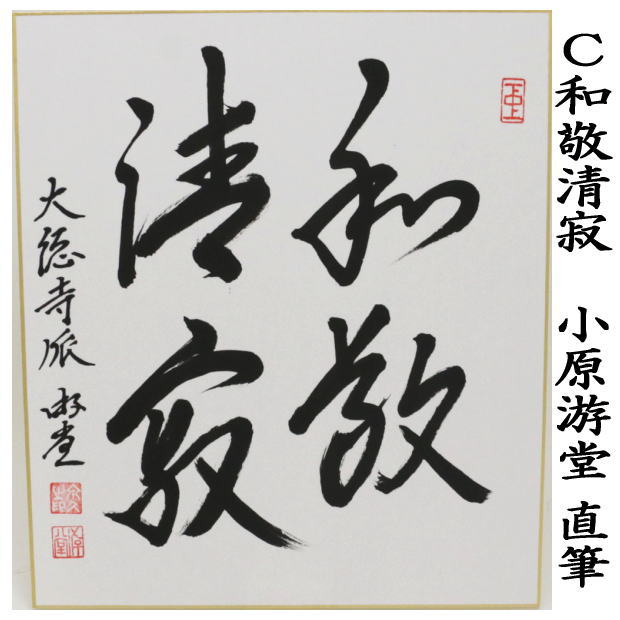 C和敬清寂 小原游堂 直筆
和敬
清寂
大徳寺派 游堂